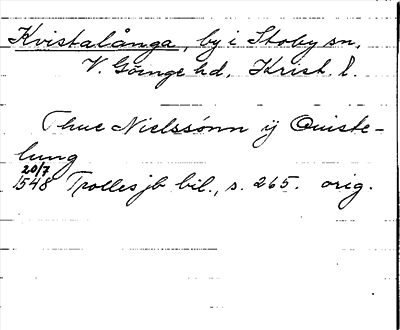 Kvistalånga, by i Stoby sn,
V. Göinge hd, Krist. l.
Thue Nielssønn ÿ Quiste-
lung
20/7
1548 Trolles jb bil., s. 265. orig.